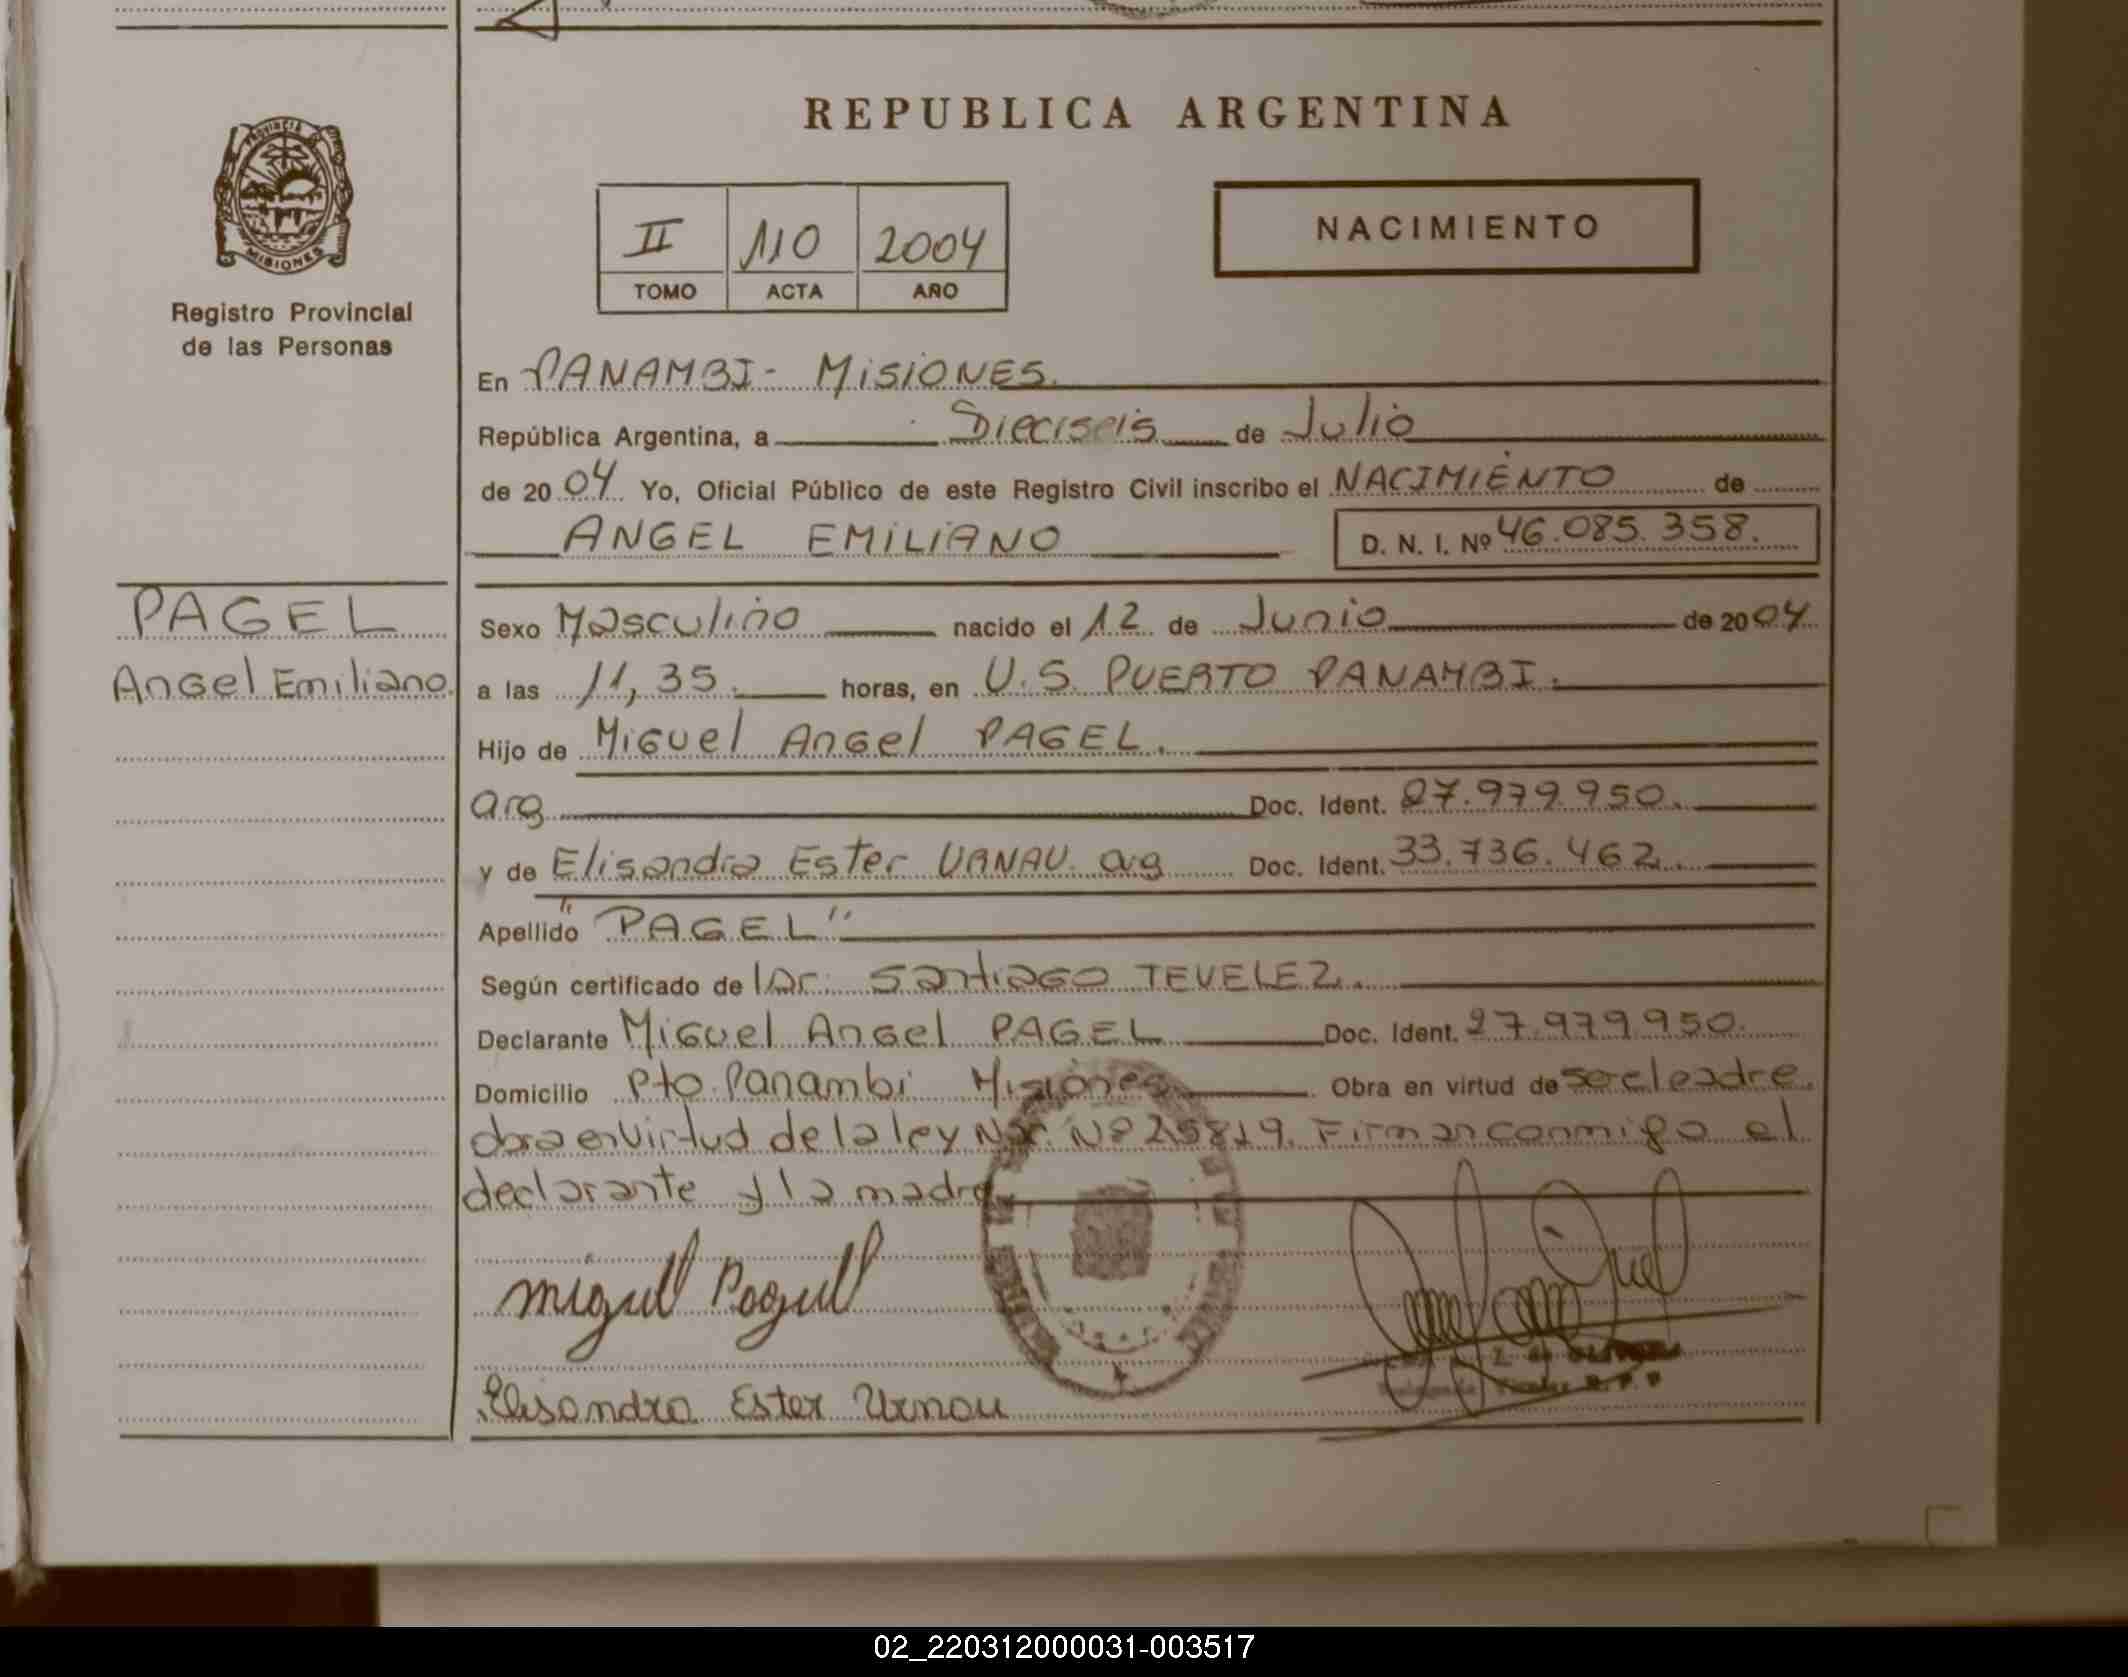 REPUBLICA ARGENTINA
PROVINCIA
MISIONES
Registro Provincial
de las Personas
II 110 2004
TOMO ACTA AÑO
NACIMIENTO
En PANAMBI - MisiONES.
República Argentina, a Dieciseis de Julio
de 2004 Yo, Oficial Público de este Registro Civil inscribo el NACIMIENTO de
ANGEL EMILIANO D. N. I. Nº 46.085.358.
PAGEL
Angel Emiliano.
Sexo Masculino nacido el 12 de Junio de 2004
a las 11,35. horas, en U.S. PUERTO PANAMBI.
Hijo de Miguel Angel PAGEL.
arg Doc. Ident. 27.979.950.
y de Elisandra Ester URNAU. arg Doc. Ident. 33.736.462.
Apellido "PAGEL"
Según certificado de Dr. Santiago TEVELEZ.
Declarante Miguel Angel PAGEL Doc. Ident. 27.979.950.
Domicilio Pto. Panambi Misiones. Obra en virtud de ser el padre.
obra en virtud de la ley Nac. Nº 25819. Firman conmigo el
declarante y la madre.
Miguel Paguel
Elisandra Ester Urnau
02_220312000031-003517